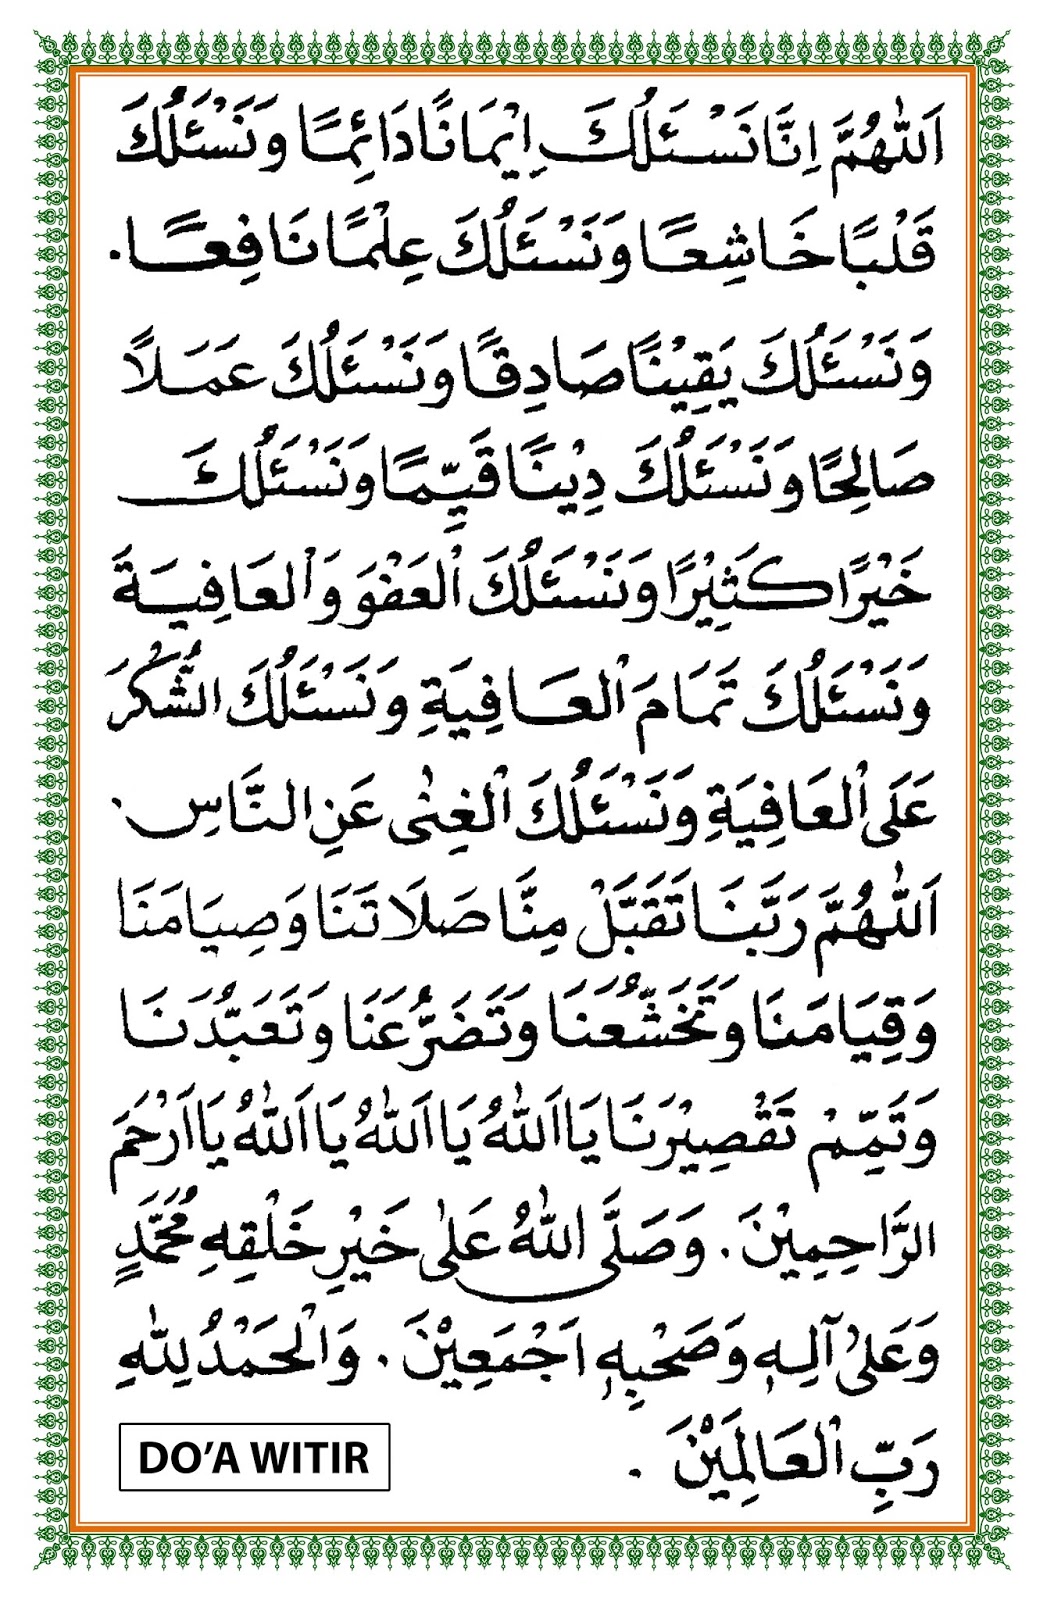 اَللّٰهُمَّ اِنَّا نَسْئَلُكَ اِيْمَانًا دَائِمًا وَنَسْئَلُكَ
قَلْبًا خَاشِعًا وَنَسْئَلُكَ عِلْمًا نَافِعًا.
وَنَسْئَلُكَ يَقِيْنًا صَادِقًا وَنَسْئَلُكَ عَمَلًا
صَالِحًا وَنَسْئَلُكَ دِيْنًا قَيِّمًا وَنَسْئَلُكَ
خَيْرًا كَثِيْرًا وَنَسْئَلُكَ الْعَفْوَ وَالْعَافِيَةَ
وَنَسْئَلُكَ تَمَامَ الْعَافِيَةِ وَنَسْئَلُكَ الشُّكْرَ
عَلَى الْعَافِيَةِ وَنَسْئَلُكَ الْغِنٰى عَنِ النَّاسِ.
اَللّٰهُمَّ رَبَّنَا تَقَبَّلْ مِنَّا صَلَاتَنَا وَصِيَامَنَا
وَقِيَامَنَا وَتَخَشُّعَنَا وَتَضَرُّعَنَا وَتَعَبُّدَنَا
وَتَمِّمْ تَقْصِيْرَنَا يَا اَللّٰهُ يَا اَللّٰهُ يَا اَللّٰهُ يَا اَرْحَمَ
الرَّاحِمِيْنَ. وَصَلَّى اللّٰهُ عَلٰى خَيْرِ خَلْقِهِ مُحَمَّدٍ
وَعَلٰى آلِهٖ وَصَحْبِهٖ اَجْمَعِيْنَ. وَالْحَمْدُ لِلّٰهِ
رَبِّ الْعَالَمِيْنَ.
DO’A WITIR